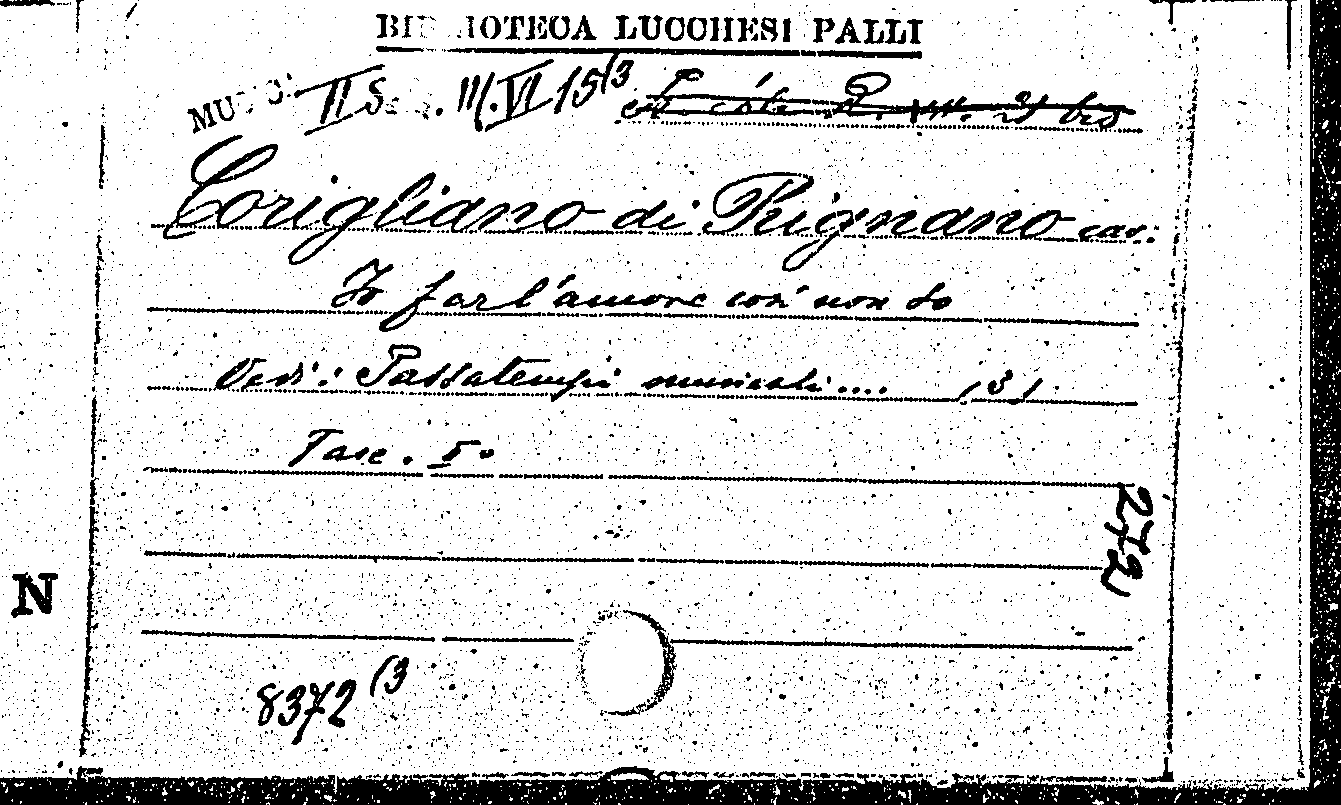 BIBLIOTECA LUCCHESI PALLI
MUSICA II S. III.VI 15(3
Corigliano di Rignano cav:
Io far l'amore così non so
Vedi: Passatempi musicali.... (3)
Fasc. I°
272
N
8372 (3